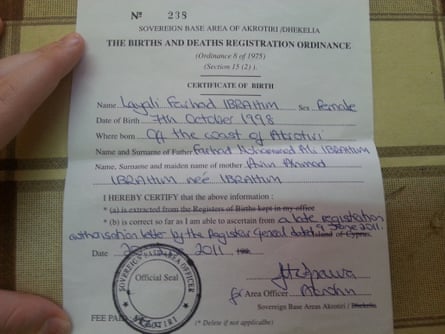 Nº 238
SOVEREIGN BASE AREA OF AKROTIRI /DHEKELIA
THE BIRTHS AND DEATHS REGISTRATION ORDINANCE
(Ordinance 8 of 1975)
(Section 15 (2) ).
CERTIFICATE OF BIRTH
Name Layali Farhad IBRAHIM Sex Female
Date of Birth 7th October 1998
Where born Off the coast of Akrotiri
Name and Surname of Father Farhad Mohammad Ali IBRAHIM
Name, Surname and maiden name of mother Ahmad
IBRAHIM née IBRAHIM
I HEREBY CERTIFY that the above information :
* (a) is extracted from the Registers of Births kept in my office
* (b) is correct so far as I am able to ascertain from a late registration
authorisation letter by the Registrar General dated 9 June 2011.
Island of Cyprus.
Date 2011
Official Seal
SOVEREIGN BASE AREA OFFICER
AKROTIRI
for Area Officer Akrotiri
Sovereign Base Areas Akrotiri / Dhekelia
FEE PAID
(* Delete if not applicalbe)